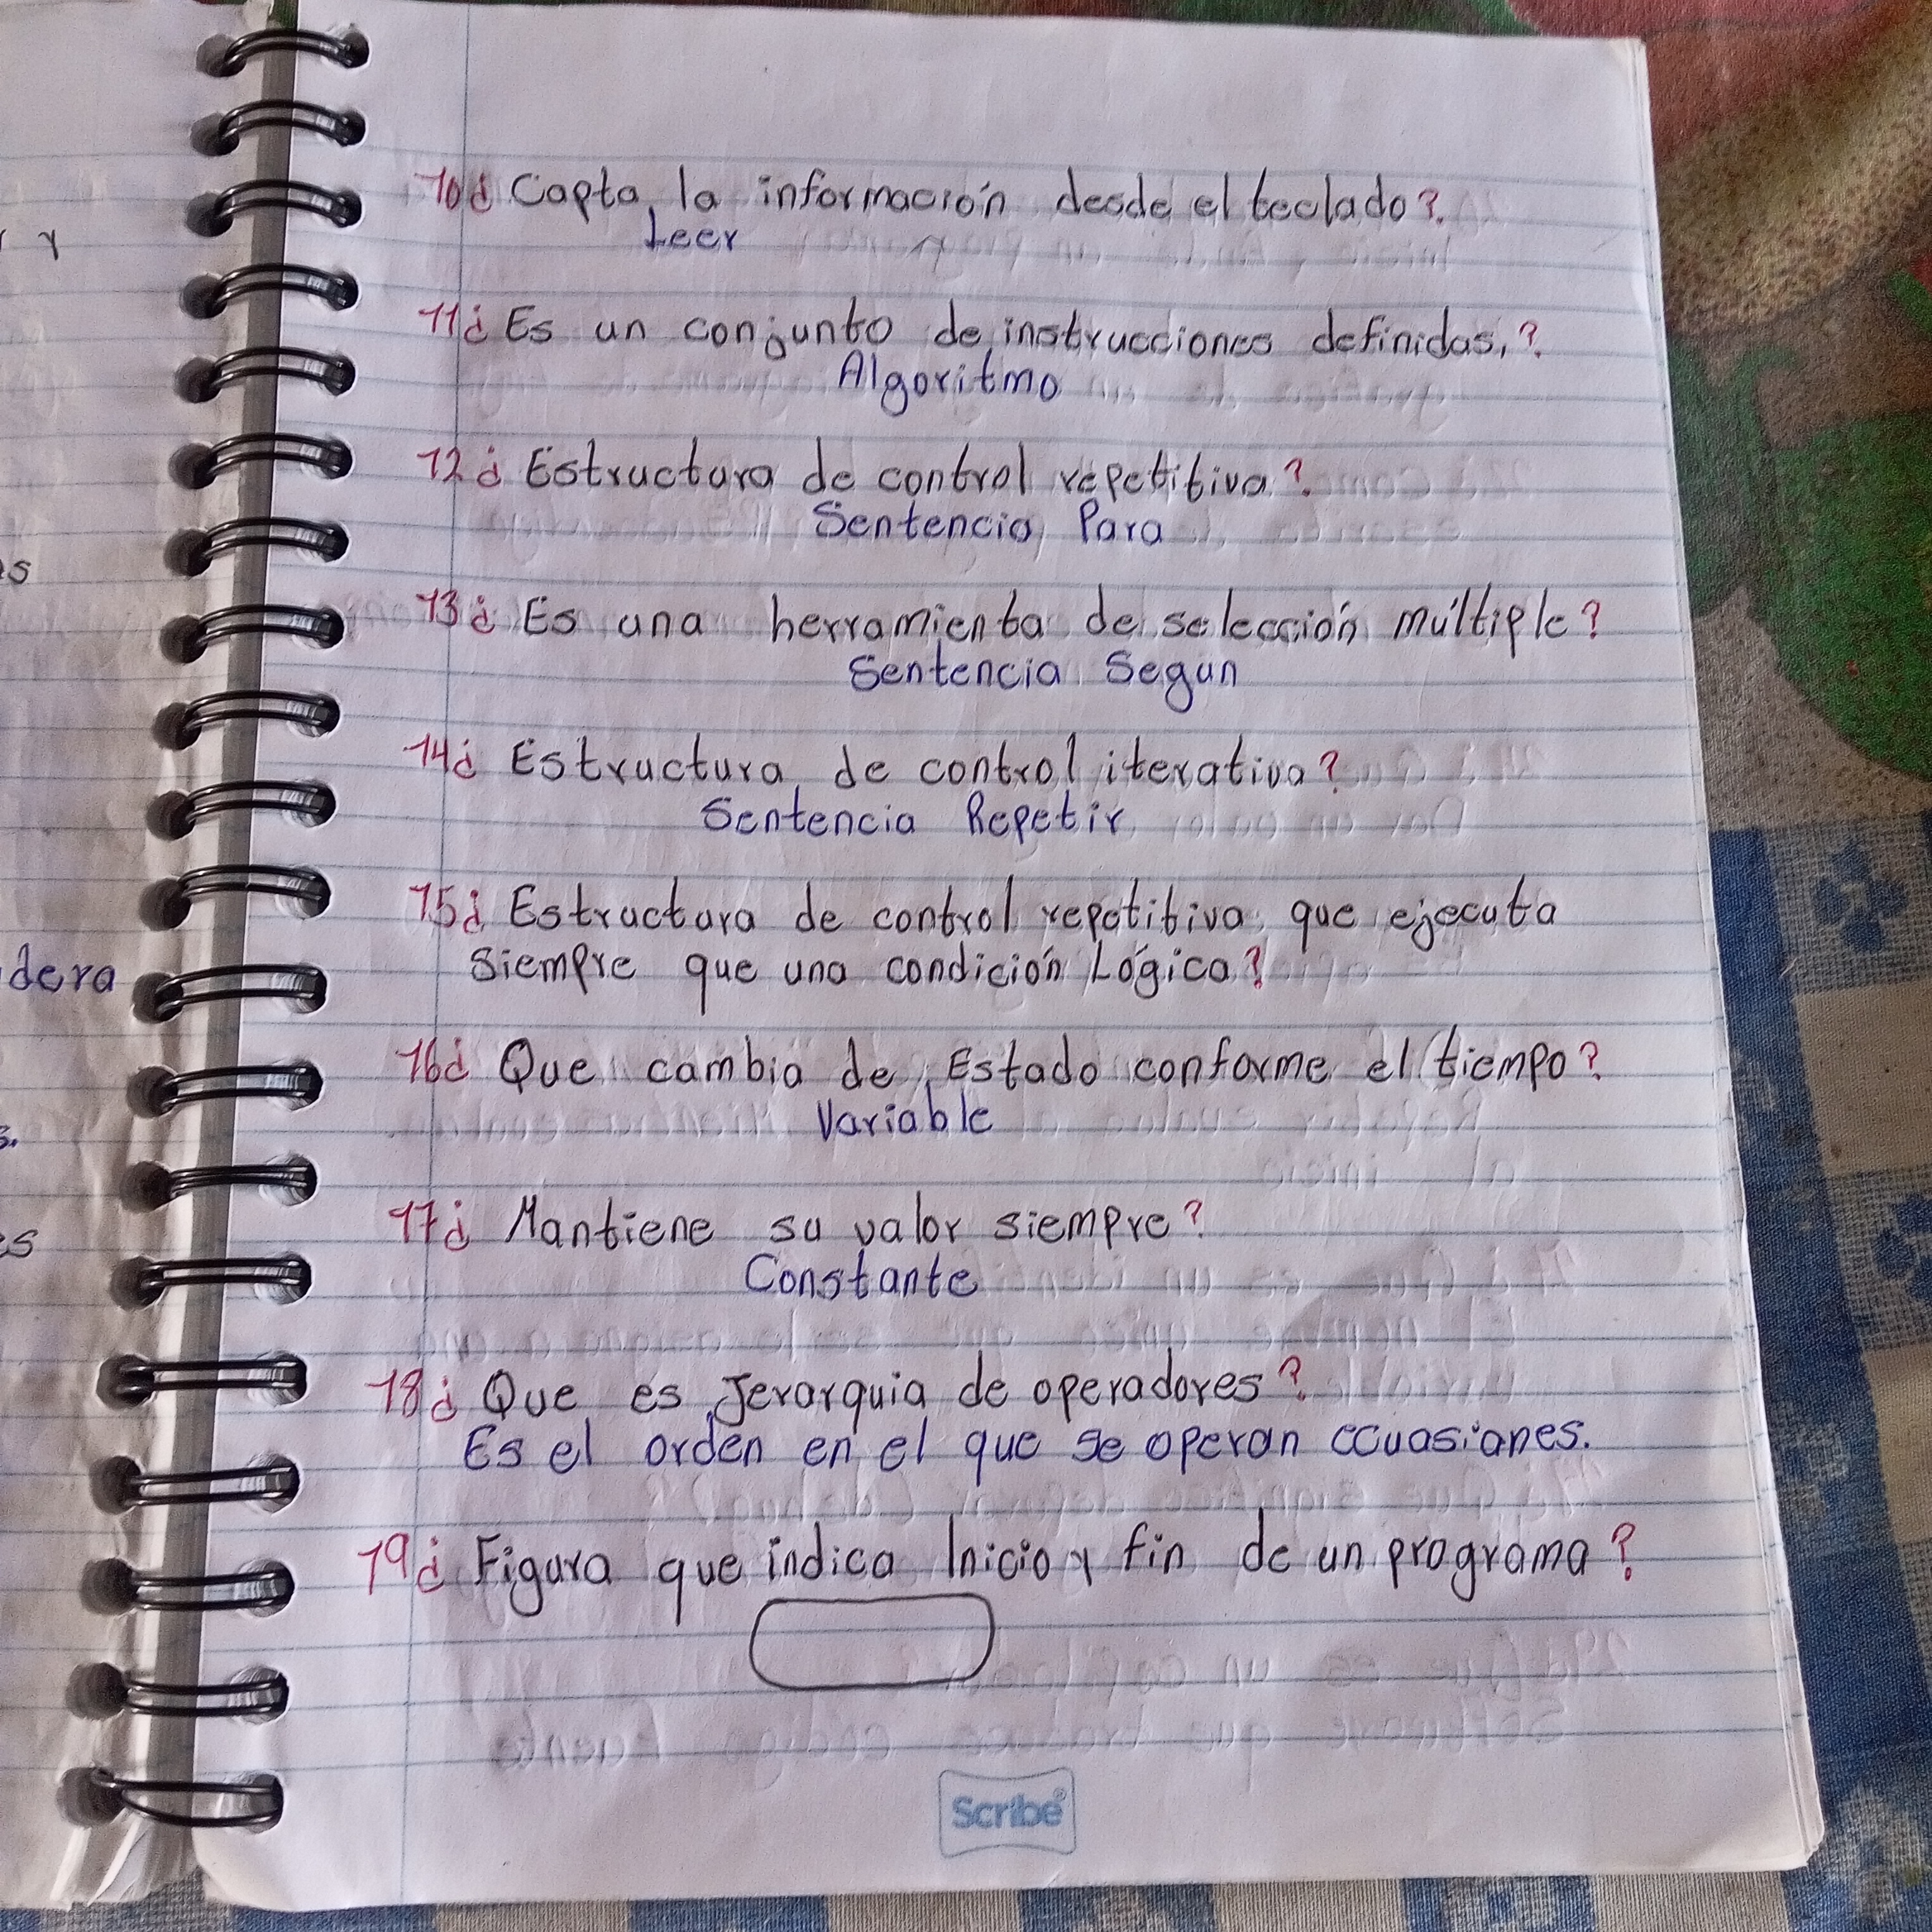 10¿ Capta la información desde el teclado?
Leer
11¿ Es un conjunto de instrucciones definidas,?
Algoritmo
12¿ Estructura de control repetitiva?
Sentencia Para
13¿ Es una herramienta de selección múltiple?
Sentencia Segun
14¿ Estructura de control iterativa?
Sentencia Repetir
15¿ Estructura de control repetitiva que ejecuta
siempre que una condición Lógica?
16¿ Que cambia de Estado conforme el tiempo?
Variable
17¿ Mantiene su valor siempre?
Constante
18¿ Que es Jerarquia de operadores?
Es el orden en el que se operan ecuasiones.
19¿ Figura que indica Inicio y fin de un programa?
Scribe®
y
s
dera
s.
es